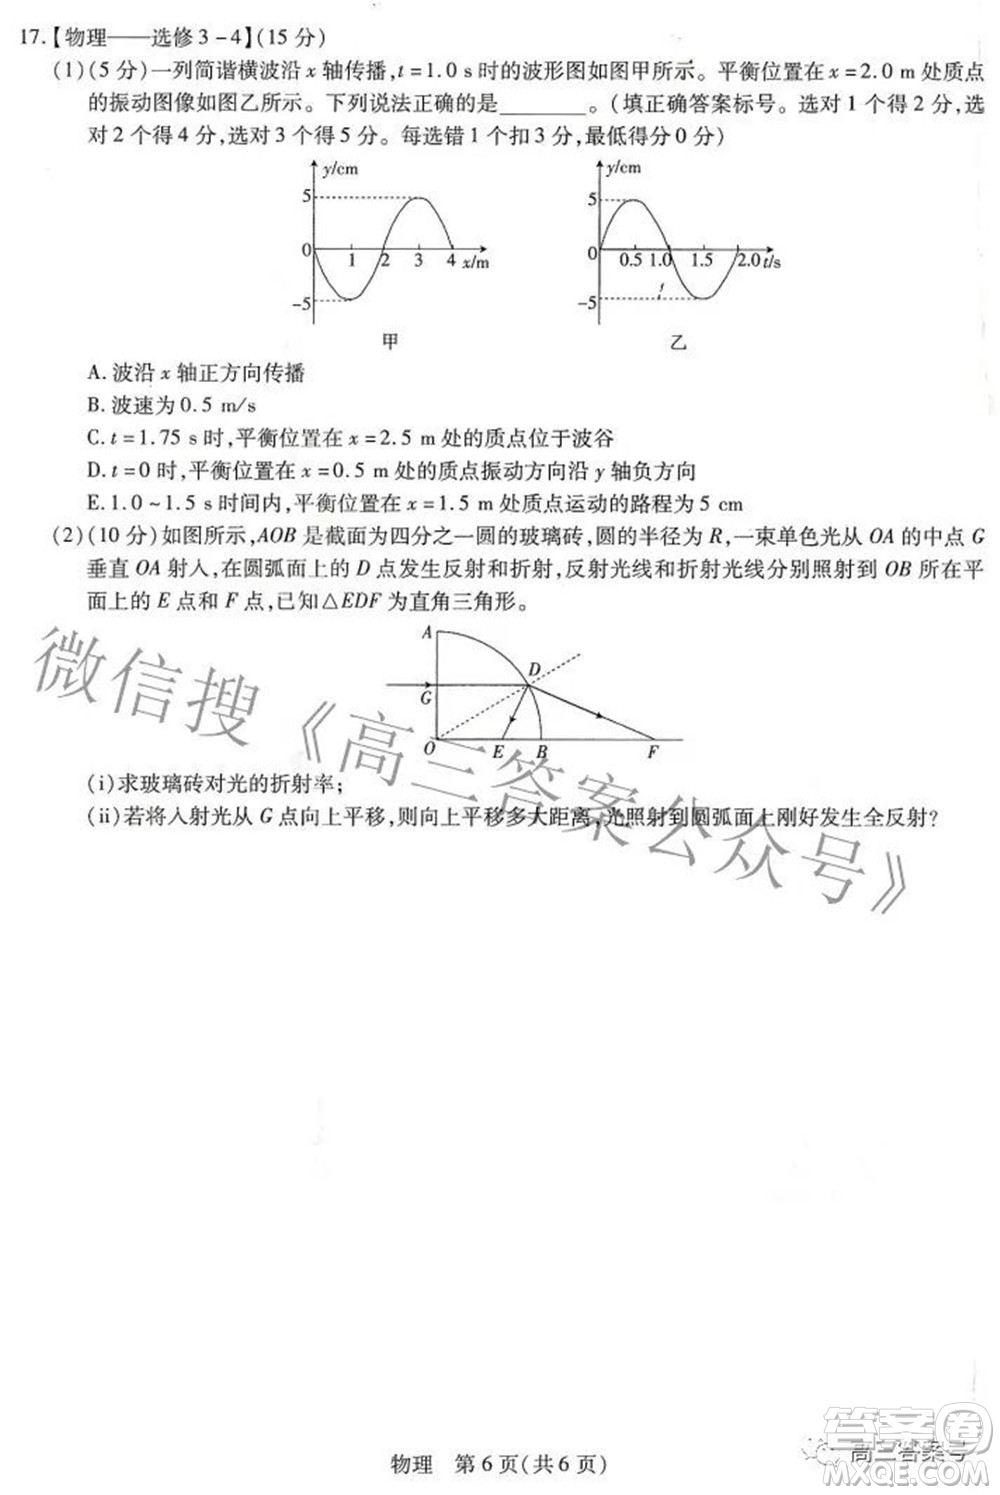 17.【物理——选修3-4】(15分)
(1)(5分)一列简谐横波沿x轴传播,t=1.0 s时的波形图如图甲所示。平衡位置在x=2.0 m处质点
的振动图像如图乙所示。下列说法正确的是________。(填正确答案标号。选对1个得2分,选
对2个得4分,选对3个得5分。每选错1个扣3分,最低得分0分)
y/cm
5
0
-5
1 2 3 4 x/m
甲
y/cm
5
0
-5
0.5 1.0 1.5 2.0 t/s
乙
A.波沿x轴正方向传播
B.波速为0.5 m/s
C.t=1.75 s时,平衡位置在x=2.5 m处的质点位于波谷
D.t=0时,平衡位置在x=0.5 m处的质点振动方向沿y轴负方向
E.1.0~1.5 s时间内,平衡位置在x=1.5 m处质点运动的路程为5 cm
(2)(10分)如图所示,AOB是截面为四分之一圆的玻璃砖,圆的半径为R,一束单色光从OA的中点G
垂直OA射入,在圆弧面上的D点发生反射和折射,反射光线和折射光线分别照射到OB所在平
面上的E点和F点,已知△EDF为直角三角形。
A
D
G
O E B F
(ⅰ)求玻璃砖对光的折射率;
(ⅱ)若将入射光从G点向上平移,则向上平移多大距离,光照射到圆弧面上刚好发生全反射?
微信搜《高三答案公众号》
物理 第6页(共6页)
高三答案号
答案圈
MXQE.COM